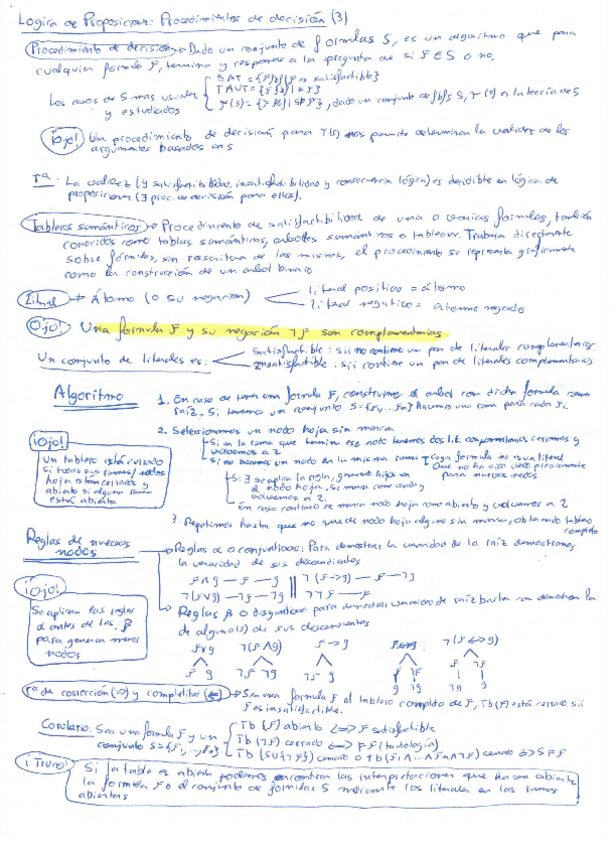 Lógica de Proposiciones: Procedimientos de decisión (3)
Procedimiento de decisión → Dado un conjunto de fórmulas S, es un algoritmo que para
cualquier fórmula F, termina y responde a la pregunta de si F ∈ S o no.
Los casos de S mas usuales
y estudiados
SAT = {F fbf | F es satisfactible}
TAUT = {F fbf | ⊨ F}
, dado un conjunto de fbfs S, es la teoría de S
¡Ojo! Un procedimiento de decisión para permite determinar la validez de los
argumentos basados en S
Tª: La validez (y satisfactibilidad, y consecuencia lógica) es decidible en lógica de
proposiciones (∃ proc. de decisión para ellos).
Tableros semánticos → Procedimiento de satisfactibilidad de una o varias fórmulas, también
conocidos como tablas semánticas, arboles semánticos o tableaux. Trabaja directamente
sobre fórmulas, sin reescritura de las mismas, el procedimiento se representa gráficamente
como la construcción de un arbol binario
Literal → Átomo (o su negación)
literal positivo = átomo
literal negativo = átomo negado
Ojo! Una formula F y su negación ¬F son complementarias
Un conjunto de literales es:
satisfactible: sii no contiene un par de literales complementarios
Insatisfactible: sii contiene un par de literales complementarios
Algoritmo
1. En caso de tener una formula F, construimos el arbol con dicha formula como
raíz. Si tenemos un conjunto hacemos una rama para cada Fi.
2. Seleccionamos un nodo hoja sin marca
Si en la rama que termina ese nodo tenemos dos lit. complementarios cerramos y
volvemos a 2
Si no buscamos un nodo en la misma rama
Cuya formula no es un literal
Que no ha sido usado previamente
para nuevos nodos
Si ∃ se aplica la regla, genera hijos en
el nodo hoja, se marca como usado y
volvemos a 2.
En caso contrario se marca nodo hoja como abierto y volvemos a 2
3. Repetimos hasta que no quede nodo hoja alguno sin marca, obteniendo tablero
completo
¡Ojo!
Un tablero está cerrado
si todas sus ramas/nodos
hoja están cerrados y
abierto si alguna rama
está abierta
Reglas de nuevos
nodos
Reglas α o conjuntivas: Para demostrar la veracidad de la raíz demostramos
la veracidad de sus descendientes
F∧G — F — G || ¬(F→G) — F — ¬G
¬(F∨G) — ¬F — ¬G || ¬¬F — F
¡Ojo!
Se aplican las reglas
α antes de las β
para generar menos
nodos
Reglas β o disyuntivas para demostrar veracidad de raíz basta con demostrar la
de alguno(s) de sus descendientes
F∨G ¬(F∧G) F→G F↔G ¬(F↔G)
F G ¬F ¬G ¬F G F ¬F F ¬F
G ¬G ¬G G
Tª de corrección (⇒) y completitud (⇐) → Sea una formula F el tablero completo de F, Tb(F) está cerrado sii
F es insatisfactible.
Corolario: Sea una formula F y un
conjunto S={F1,...,Fn}
Tb (F) abierto ⟺ F satisfactible
Tb (¬F) cerrado ⟺ ⊨F (tautología)
Tb (S∪{¬F}) cerrado o Tb(F1∧...∧Fn∧¬F) cerrado ⟺ S⊨F
¡Truco!
Si la tabla es abierta podemos encontrar las interpretaciones que hacen abierta
la formula F o el conjunto de formulas S mediante los literales en las ramas
abiertas